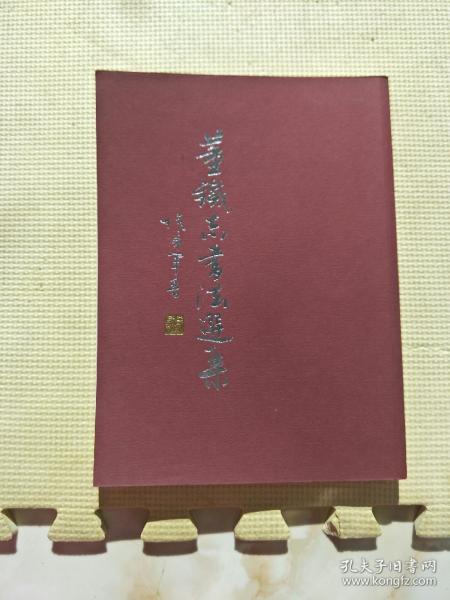 董鐵志書法選集
孔夫子旧书网
www.kongfz.com